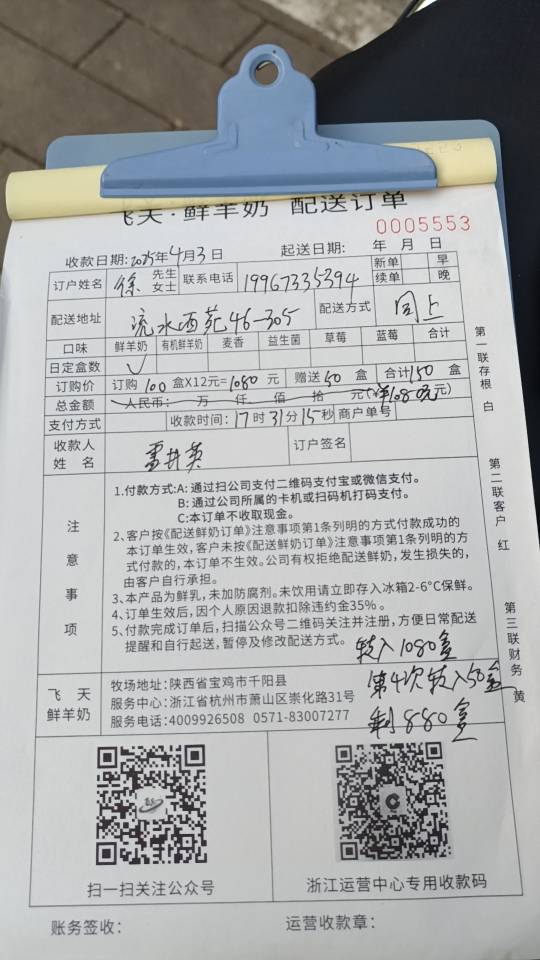 飞天·鲜羊奶 配送订单
0005553
收款日期: 2025年4月3日 起送日期: 年 月 日
订户姓名 徐 先生 女士 联系电话 19967335394 新单 早
续单 晚
配送地址 流水西苑46-305 配送方式 同上
口味 鲜羊奶 有机鲜羊奶 麦香 益生菌 草莓 蓝莓 合计
日定盒数 ✓
订购价 订购 100 盒X12元=1080 元 赠送 50 盒 合计150 盒
总金额 人民币: 万 仟 佰 拾 元(¥1080元元)
支付方式 收款时间: 17时31分15秒 商户单号
收款人姓名 订户签名
注意事项
1.付款方式:A: 通过扫公司支付二维码支付宝或微信支付。
B: 通过公司所属的卡机或扫码机打码支付。
C:本订单不收取现金。
2、客户按《配送鲜奶订单》注意事项第1条列明的方式付款成功的
本订单生效，客户未按《配送鲜奶订单》注意事项第1条列明的方
式付款的，本订单不生效。公司有权拒绝配送鲜奶，发生损失的，
由客户自行承担。
3、本产品为鲜乳，未加防腐剂。未饮用请立即存入冰箱2-6°C保鲜。
4、订单生效后，因个人原因退款扣除违约金35%。
5、付款完成订单后，扫描公众号二维码关注并注册，方便日常配送
提醒和自行起送，暂停及修改配送方式。
转入1080盒
第4次转入50盒
剩880盒
飞天鲜羊奶
牧场地址: 陕西省宝鸡市千阳县
服务中心: 浙江省杭州市萧山区崇化路31号
服务电话: 4009926508 0571-83007277
扫一扫关注公众号
浙江运营中心专用收款码
账务签收: 运营收款章:
第一联存根 白
第二联客户 红
第三联财务 黄